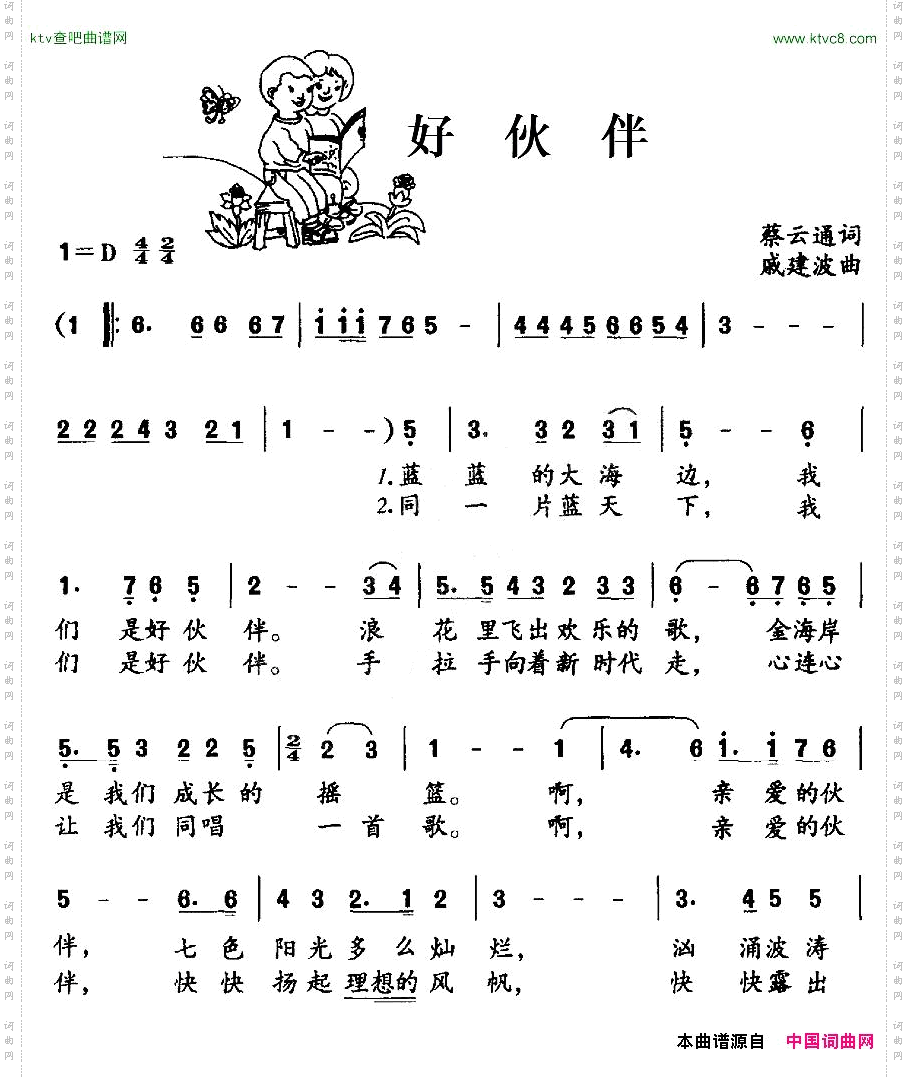 ktv查吧曲谱网
www.ktvc8.com
好伙伴
1=D 4/4 2/4
蔡云通词
戚建波曲
(1 ‖: 6. 66 67 | i i i 7 6 5 - | 44456654 | 3 - - - |
22 24 3 21 | 1 - - ) 5 | 3. 3 2 31 | 5 - - 6
1.蓝 蓝 的大 海 边, 我
2.同 一 片蓝 天 下, 我
1. 7 6 5 | 2 - - 34 | 5. 5 4 3 2 33 | 6 - 6 7 6 5 |
们 是好 伙 伴。 浪 花 里飞出 欢 乐的 歌, 金海岸
们 是好 伙 伴。 手 拉 手向着 新 时代 走, 心连心
5. 5 3 2 2 5 | 2/4 2 3 | 1 - - 1 | 4. 6 i. i 7 6 |
是 我们 成长 的 摇 篮。 啊, 亲 爱 的伙
让 我们 同唱 一 首 歌。 啊, 亲 爱 的伙
5 - - 6. 6 | 4 3 2. 1 2 | 3 - - - | 3. 4 5 5 |
伴, 七 色 阳 光 多 么 灿 烂, 汹 涌波 涛
伴, 快 快 扬 起 理想的 风 帆, 快 快露 出
本曲谱源自 中国词曲网
词曲网 词曲网 词曲网 词曲网 词曲网 词曲网
词曲网 词曲网 词曲网 词曲网 词曲网 词曲网